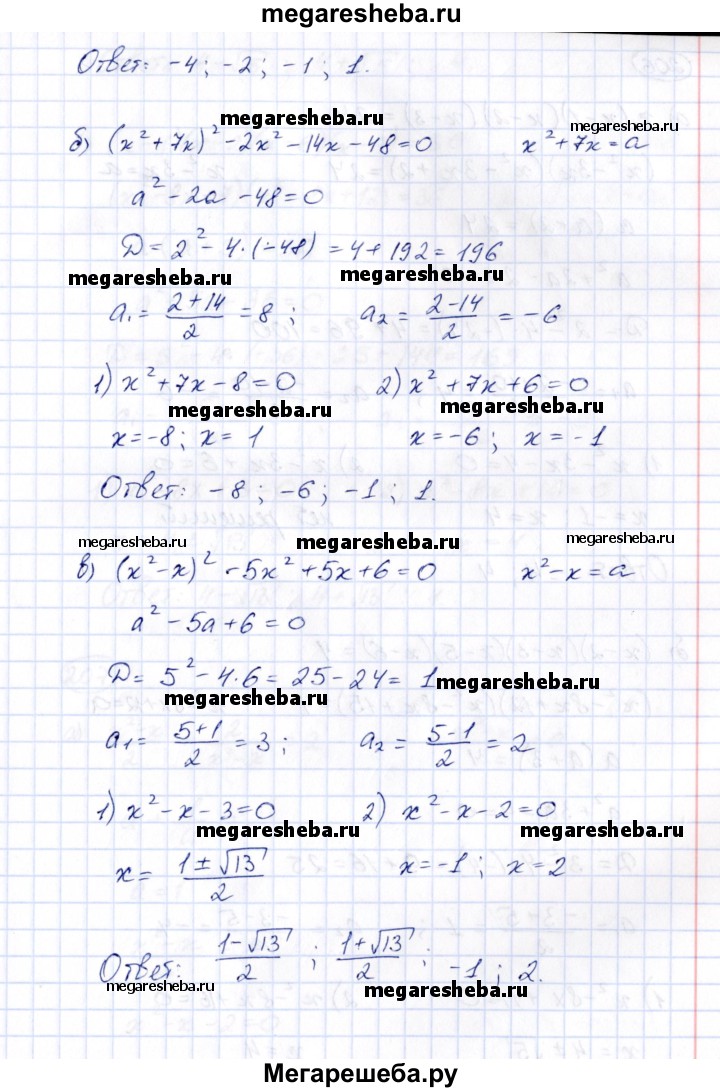 megaresheba.ru
Ответ: -4; -2; -1; 1.
megaresheba.ru
megaresheba.ru
б) (x² + 7x)² - 2x² - 14x - 48 = 0 x² + 7x = a
a² - 2a - 48 = 0
D = 2² - 4·(-48) = 4 + 192 = 196
megaresheba.ru megaresheba.ru
a₁ = (2+14)/2 = 8; a₂ = (2-14)/2 = -6
1) x² + 7x - 8 = 0 2) x² + 7x + 6 = 0
megaresheba.ru megaresheba.ru
x = -8; x = 1 x = -6; x = -1
Ответ: -8; -6; -1; 1.
megaresheba.ru megaresheba.ru megaresheba.ru
в) (x² - x)² - 5x² + 5x + 6 = 0 x² - x = a
a² - 5a + 6 = 0
D = 5² - 4·6 = 25 - 24 = 1
megaresheba.ru
megaresheba.ru
a₁ = (5+1)/2 = 3; a₂ = (5-1)/2 = 2
1) x² - x - 3 = 0 2) x² - x - 2 = 0
megaresheba.ru megaresheba.ru
x = (1±√13)/2 x = -1; x = 2
Ответ: (1-√13)/2; (1+√13)/2; -1; 2.
megaresheba.ru megaresheba.ru
Мегарешеба.ру